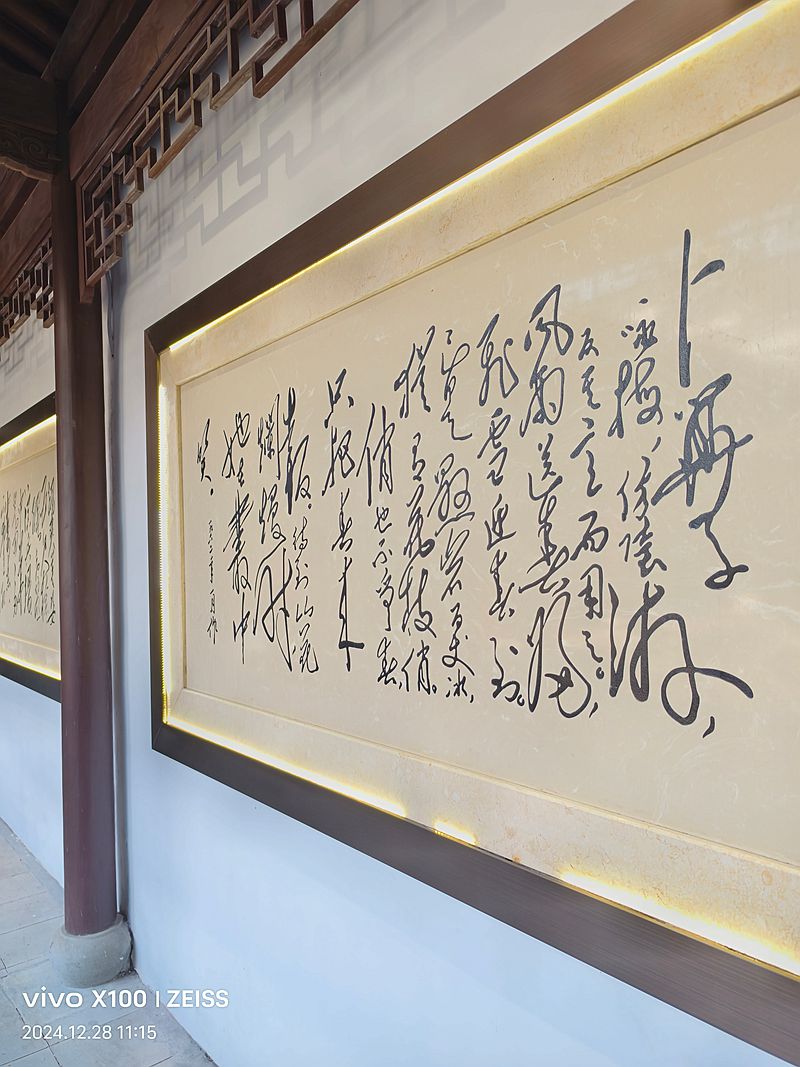 卜算子
咏梅，讀陸游，
反其意而用之。
風雨送春歸，
飛雪迎春到。
已是懸岩百丈冰，
猶有花枝俏。
俏也不争春，
只把春来
報。待到山花
爛熳时
她在叢中
笑。
vivo X100 | ZEISS
2024.12.28 11:15